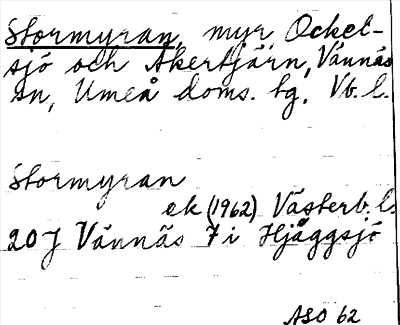 Stormyran, myr, Ockel-
sjö och Åkertjärn, Vännäs
sn, Umeå doms. tg. Vb. l.
Stormyran
ek (1962) Västerb. l.
20J Vännäs 7i Hjäggsjö
ASO 62